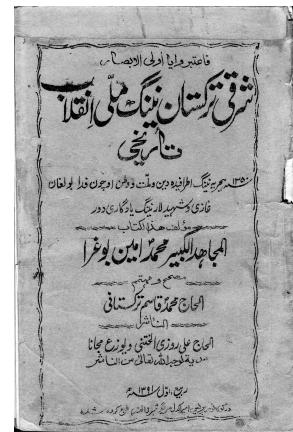 فاعتبروا يا اولى الابصار
شرقى تركستان نينگ ملى انقلاب
تاريخى
۱۳۵۰ هجريه نينگ اطرافيده دين وملت و وطن اوچون فدا بولغان
غازى و شهيدلارنينگ يادگارى دور
مؤلف هذا الكتاب
المجاهد الكبير محمد امين بوغرا
مصحح و مهتمم
الحاج محمد قاسم تركستانى
الناشر
الحاج على روزى الختنى ويوزع مجانا
هدية لوجه الله تعالى من الناشر
ربيع الاول ۱۳۹۱ هـ